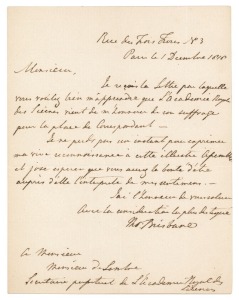 Rue des Trois Frères N° 3
Paris le 1 Decembre 18
Monsieur,
Je reçois la lettre par laquelle
vous voulez bien m'apprendre que l'Academie Royale
des Sciences vient de m'honorer de son suffrage
pour la place de Correspondant —
Je ne perds pas un instant pour exprimer
ma vive reconnaissance à cette illustre Assemblée
et j'ose esperer que vous aurez la bonté d'être
auprès d'elle l'interprete de mes sentimens —
J'ai l'honneur de vous saluer
Avec la consideration la plus distinguée
Tho Brisbane
A Monsieur
Monsieur de
Secretaire perpetuel de L'Academie Royal des
Sciences